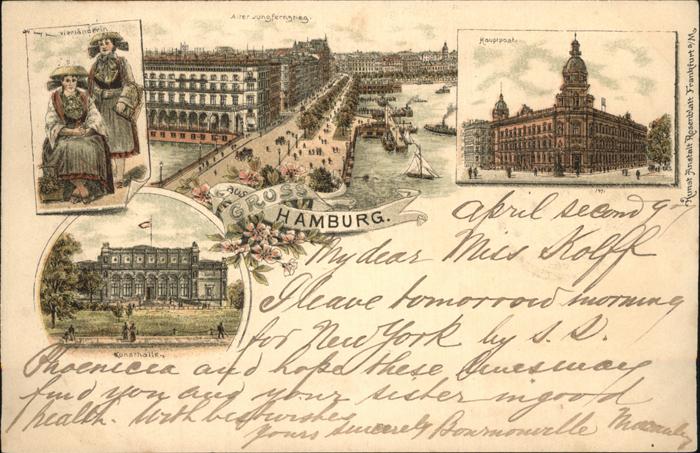 Vierländerin.
Alter Jungfernstieg.
Hauptpost.
Kunst Anstalt Rosenblatt Frankfurt a/M.
GRUSS
AUS
HAMBURG.
Kunsthalle.
April second 97
My dear Miss Kolff
I leave tomorrow morning
for New York by S. S.
Phoenicia and hope these lines may
find you and your sister in good
health. With best wishes
Yours sincerely Bournonville